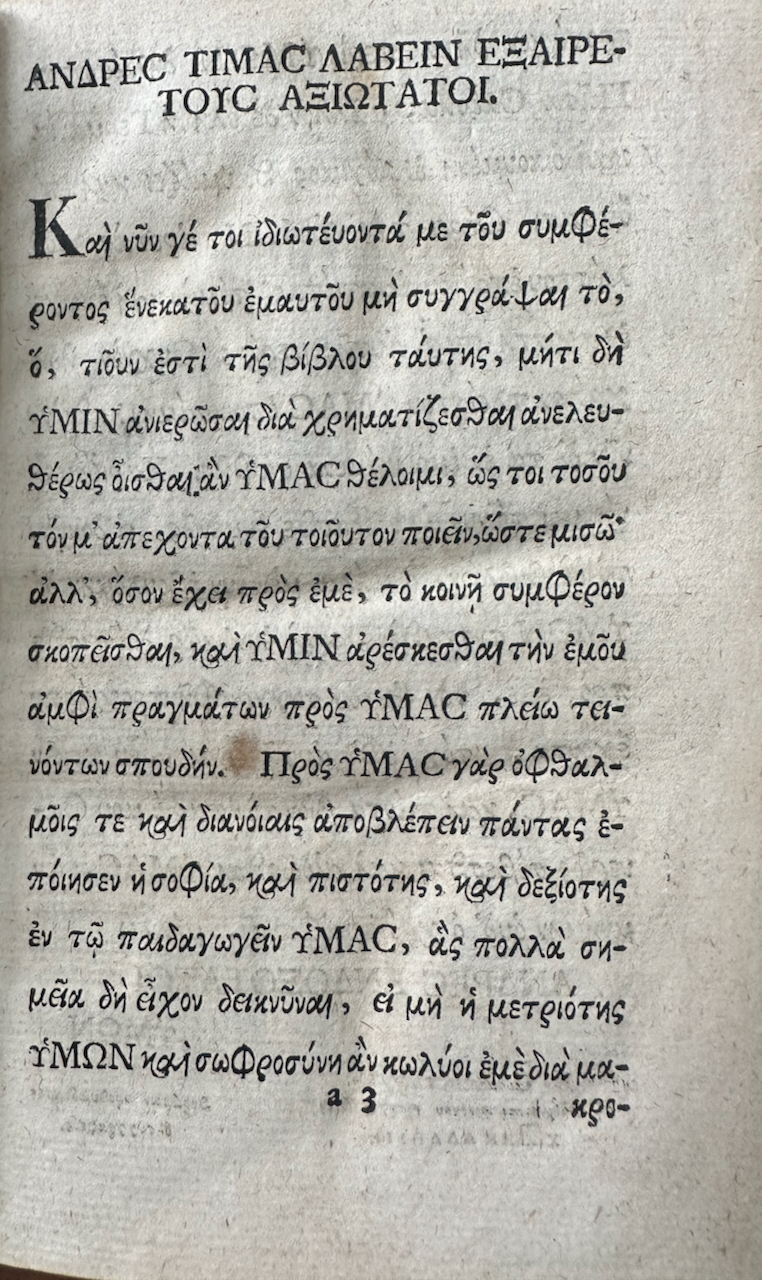 ΑΝΔΡΕϹ ΤΙΜΑϹ ΛΑΒΕΙΝ ΕΞΑΙΡΕ-
ΤΟΥϹ ΑΞΙΩΤΑΤΟΙ.
Καὶ νῦν γέ τοι ἰδιωτέυοντά με τοῦ συμφέ-
ροντος ἕνεκατοῦ ἐμαυτοῦ μὴ συγγράψαι τὸ,
ὅ, τιοῦν ἐστὶ τῆς βίβλου τάυτης, μήτι δὴ
ὙΜΙΝ ἀνιερῶσαι διὰ χρηματίζεσθαι ἀνελευ-
θέρως ὄισθαι ἂν ὙΜΑϹ θέλοιμι, ὥς τοι τοσοῦ
τόν μ' ἀπεχοντα τοῦ τοιοῦτον ποιεῖν, ὥστε μισῶ·
ἀλλ', ὅσον ἔχει πρὸς ἐμὲ, τὸ κοινῇ συμφέρον
σκοπεῖσθαι, καὶ ὙΜΙΝ ἀρέσκεσθαι τὴν ἐμοῦ
ἀμφὶ πραγμάτων πρὸς ὙΜΑϹ πλείω τει-
νόντων σπουδήν. Πρὸς ὙΜΑϹ γὰρ ὀφθαλ-
μοῖς τε καὶ διανόιαις ἀποβλέπειν πάντας ἐ-
πόιησεν ἡ σοφία, καὶ πιστότης, καὶ δεξίοτης
ἐν τῷ παιδαγωγεῖν ὙΜΑϹ, ἃς πολλὰ ση-
μεῖα δὴ εἶχον δεικνῦναι, εἰ μὴ ἡ μετριότης
ὙΜΩΝ καὶ σωφροσύνη ἂν κωλύοι ἐμὲ διὰ μα-
a 3 κρο-